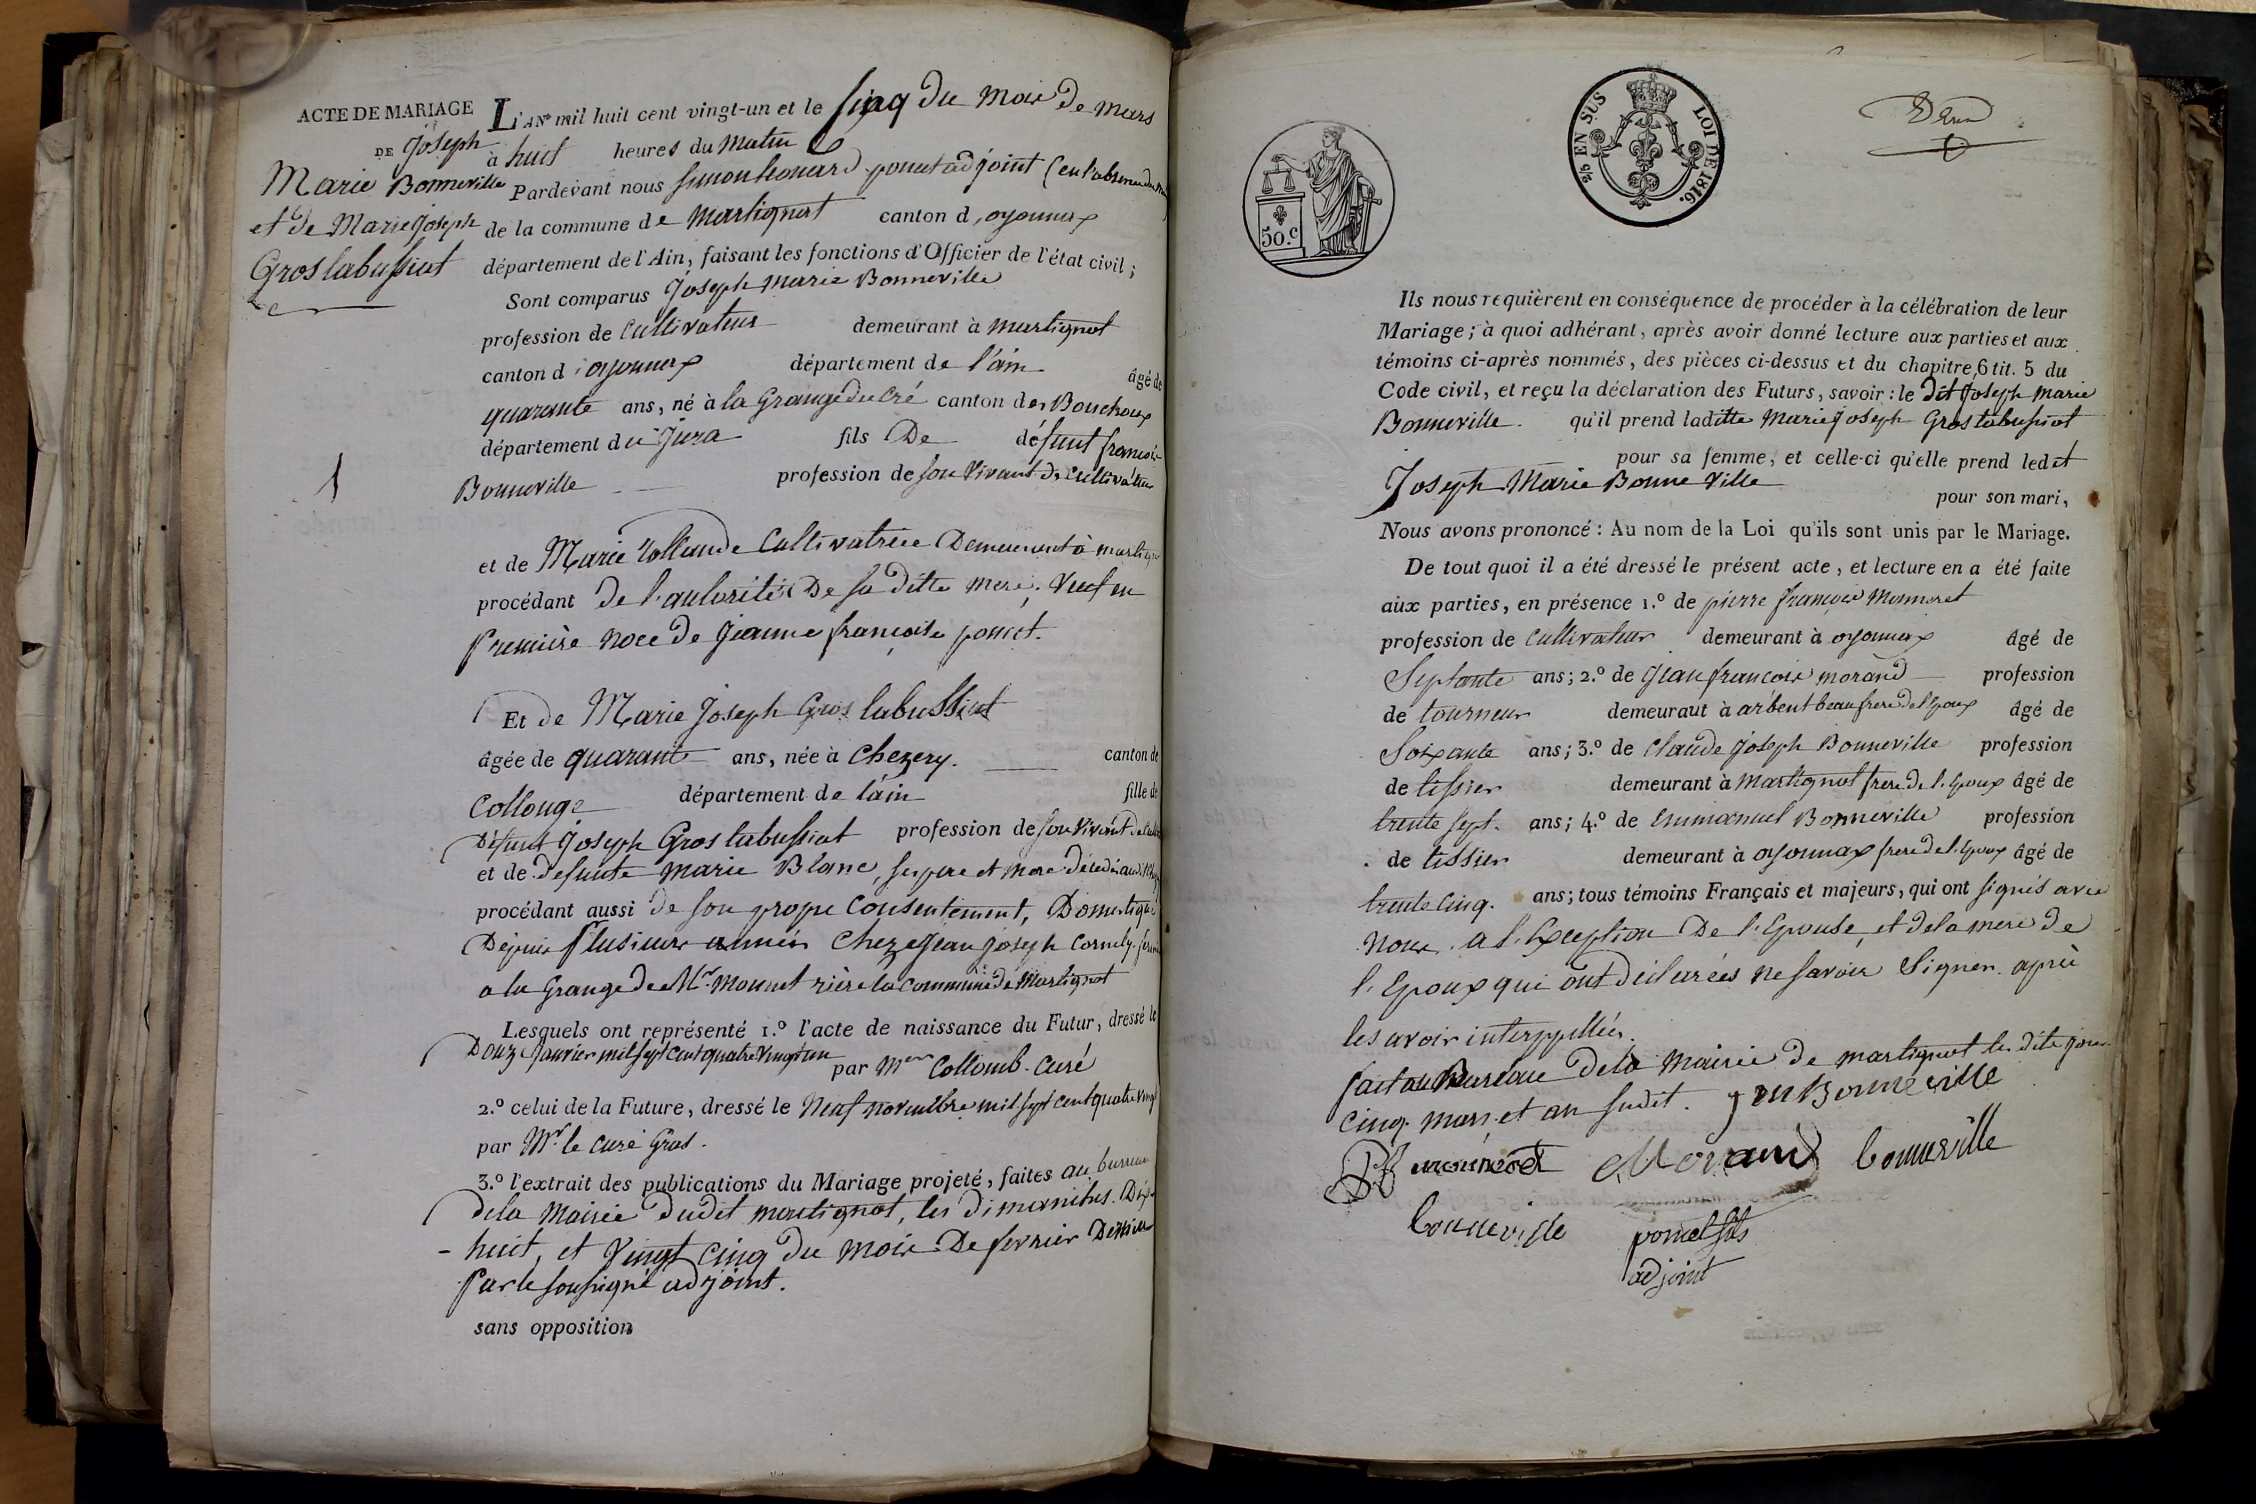 ACTE DE MARIAGE
DE Joseph
Marie Bonneville
et de Marie Joseph
Gros labussiat
1
L'AN mil huit cent vingt-un et le sinq du mois de mars
à huit heures du matin
Pardevant nous Simon leonard ponset adjoint (en l'absence du
de la commune de Martignat canton d'oyonnax
département de l'Ain, faisant les fonctions d'Officier de l'état civil;
Sont comparus Joseph Marie Bonneville
profession de cultivateur demeurant à martignat
canton d'oyonnax département de l'ain âgé de
quarante ans, né à la Grange du Cré canton des Bouchoux
département du Jura fils De défunt francois
Bonneville profession de son vivant de cultivateur
et de Marie Rollande Cultivatrice Demeurant à
procédant de l'autorité De sa ditte mere. Veuf en
première noce de Jeanne françoise poncet.
Et de Marie Joseph Gros labussiat
âgée de quarante ans, née à Chezery. canton de
Collonge département de l'ain fille de
Défunt Joseph Gros labussiat profession de son Vivant de
et de defunte marie Blanc, ses pere et mere décedés
procédant aussi de son propre Consentement, Domestique
Depuis plusieurs années Chez Jean joseph Cornely
a la Grange de Mr. monnet rière la commune de Martignat
Lesquels ont représenté 1.º l'acte de naissance du Futur, dressé le
Douze Janvier mil sept cent quatre vingt un par Mer Collomb. curé
2.º celui de la Future, dressé le Neuf novembre mil sept cent quatre vingt
par Mr. le curé Gras.
3.º l'extrait des publications du Mariage projeté, faites au bureau
dela Mairie dudit martignat, les dimanches. Dix
- huit, et vingt cinq du mois De fevrier Dernier
par le soussigné adjoint.
sans opposition
50.c
25 EN SUS LOI DE 1816.
Ils nous requièrent en conséquence de procéder à la célébration de leur
Mariage; à quoi adhérant, après avoir donné lecture aux parties et aux
témoins ci-après nommés, des pièces ci-dessus et du chapitre 6 tit. 5 du
Code civil, et reçu la déclaration des Futurs, savoir: le dit Joseph Marie
Bonneville. qu'il prend laditte Marie Joseph Gros labussiat
pour sa femme, et celle-ci qu'elle prend ledit
Joseph Marie Bonne Ville pour son mari,
Nous avons prononcé: Au nom de la Loi qu'ils sont unis par le Mariage.
De tout quoi il a été dressé le présent acte, et lecture en a été faite
aux parties, en présence 1.º de pierre françois Monneret
profession de cultivateur demeurant à oyonnax âgé de
Septante ans; 2.º de Jean francois morand profession
de tourneur demeurant à arbent beau frere de l'epoux âgé de
Soixante ans; 3.º de Claude Joseph Bonneville profession
de tissier demeurant à Martignat frere de l'epoux âgé de
trente sept. ans; 4.º de Emmanuel Bonneville profession
de tissier demeurant à oyonnax frere de l'epoux âgé de
trente cinq. ans; tous témoins Français et majeurs, qui ont signés avec
nous. a l'Exception De l'Epouse, et de la mere de
l'Epoux qui ont déclarées ne savoir Signer. après
les avoir interppellées.
fait au Bureau de la Mairie de martignat les dits jour
cinq mars et an sudit. J m Bonneville
Pf monneret Morand bonneville
bonneville poncet fils
adjoint